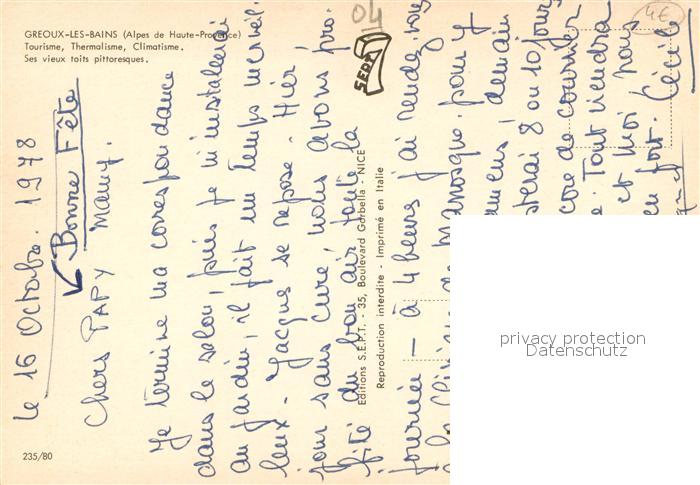 GREOUX-LES-BAINS (Alpes de Haute-Provence)
Tourisme, Thermalisme, Climatisme.
Ses vieux toits pittoresques.
04
4€
SEPT
le 16 Octobre. 1978
Bonne Fête
Chers PAPY Mamy.
Je termine ma correspondance
dans le salon, puis je m'installerai
au jardin, il fait un temps merveil-
leux - Jacques se repose. Hier
jour sans cure, nous avons pro-
fité du bon air toute la
journée - à 4 heures j'ai rendez vous
à la de Manosque, pour y
demain
8 ou 10 jours
de courrier
Tout viendra
et moi nous
fort. Cécile
Editions S.E.P.T. - 35, Boulevard Gorbella - NICE
Reproduction interdite - Imprimé en Italie
235/80
privacy protection
Datenschutz